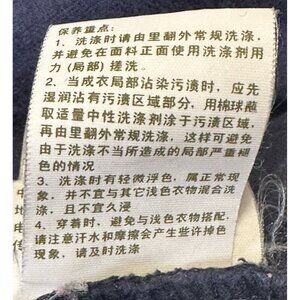 保养重点：
1、洗涤时请由里翻外常规洗涤，
并避免在面料正面使用洗涤剂用
力（局部）搓洗。
2、当成衣局部沾染污渍时，应先
湿润沾有污渍区域部分，用棉球蘸
取适量中性洗涤剂涂于污渍区域，
再由里翻外常规洗涤，这样可避免
由于洗涤不当所造成的局部严重褪
色的情况
3、洗涤时有轻微浮色，属正常现
象，并不宜与其它浅色衣物混合洗
涤，且不宜久浸
4、穿着时，避免与浅色衣物搭配，
请注意汗水和摩擦会产生些许掉色
现象，请及时洗涤
中
地
电